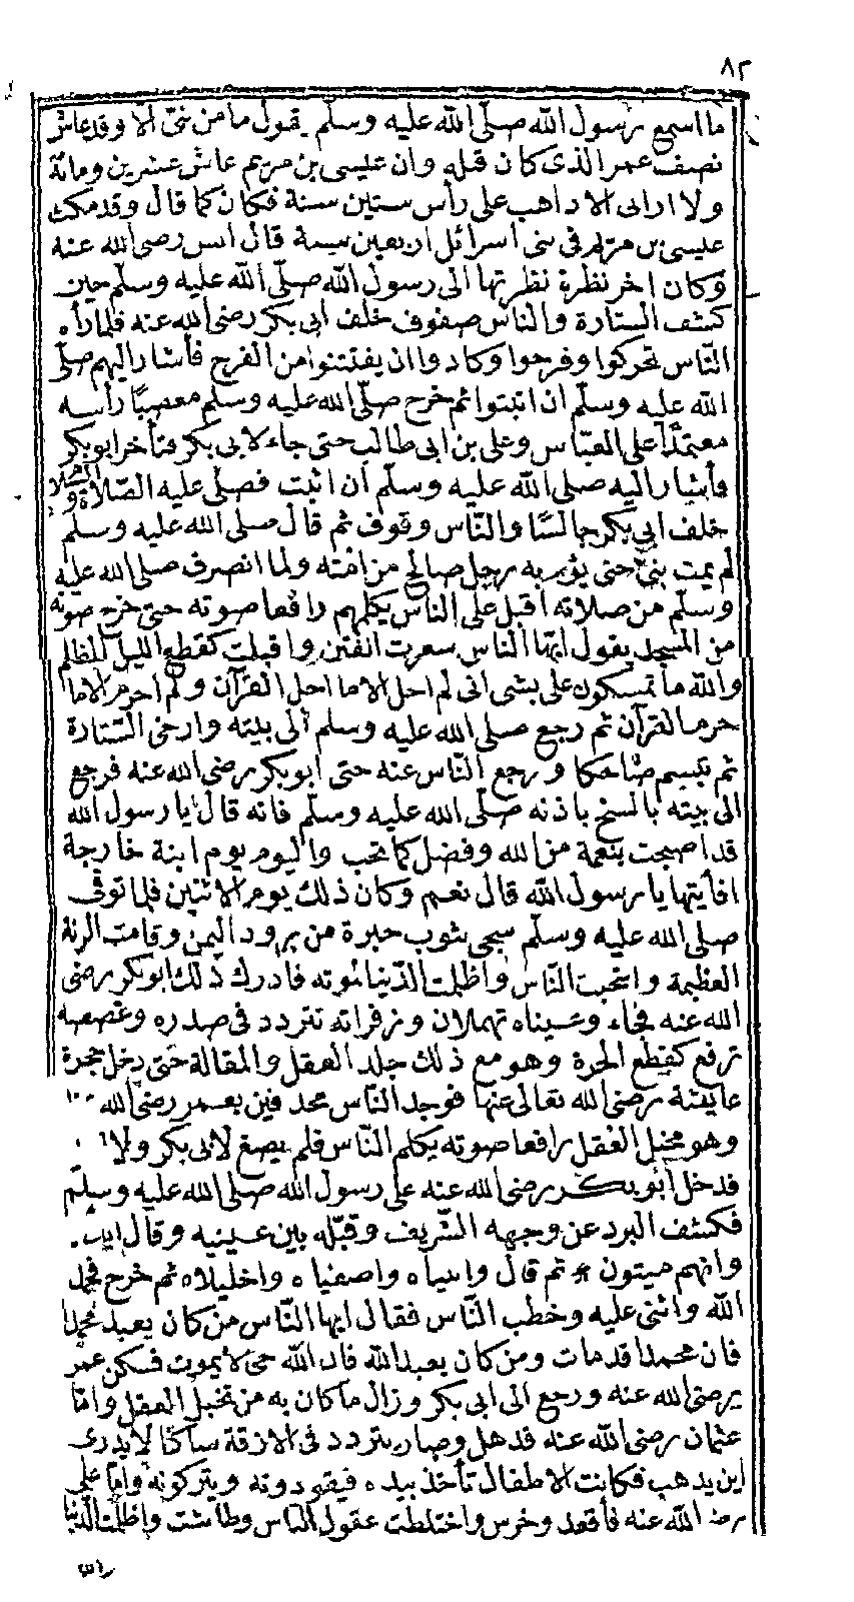 ٨٢
ما اسمع رسول الله صلّى الله عليه وسلّم يقول ما من نبىّ الّا وقد عاش
نصف عمر الذى كان قبله وان عليسى بن مريم عاش عشرين ومائة
ولا ارانى الا ذاهب على رأس ستين سنة فكان كما قال وقد مكث
عليسى بن مريم فى بنى اسرائل اربعين سنة قال انس رضى الله عنه
وكان اخر نظرة نظرتها الى رسول الله صلّى الله عليه وسلّم حين
كشف الستارة والناس صفوف خلف ابى بكر رضى الله عنه فلما رأه
النّاس تحركوا وفرحوا وكادوا ان يفتتنوا من الفرح فأشار اليهم صلّى
الله عليه وسلّم ان اثبتوا ثم خرج صلّى الله عليه وسلّم معصبًا رأسه
معتمدًا على العبّاس وعلى بن ابى طالب حتى جاء لابى بكر فتأخر ابو بكر
فأشار اليه صلى الله عليه وسلّم ان اثبت فصلى عليه الصّلاة و السلام
خلف ابى بكر جالسًا والنّاس وقوف ثم قال صلى الله عليه وسلم
لم يمت نبىّ حتى يؤمه رجل صالح من امّته ولما انصرف صلى الله عليه
وسلّم من صلاته اقبل على الناس يكلمهم رافعا صوته حتى خرج صوته
من المسجد يقول ايّها الناس سعرت الفتن واقبلت كقطع الليل المظلم
والله ما تمسكون على بشى انى لم احل الا ما احل القرآن ولم احرم الا ما
حرم القرآن ثم رجع صلى الله عليه وسلم الى بيته وارخى الستارة
ثم تبسم ضاحكا ورجع النّاس عنه حتى ابو بكر رضى الله عنه فرجع
الى بيته بالسنح باذنه صلّى الله عليه وسلّم فانه قال يا رسول الله
قد اصبحت بنعمة من الله وفضل كما تحب واليوم يوم ابنة خارجة
افأيتها يا رسول الله قال نعم وكان ذلك يوم الاثنين فلما توفى
صلى الله عليه وسلّم سجى بثوب حبرة من برود اليمن وقامت الرنة
العظيمة وانتحبت النّاس واظلمت الدّنيا لموته فادرك ذلك ابو بكر رضى
الله عنه فجاء وعيناه تهملان وزفراته تتردد فى صدره وغصصه
ترفع كقطع الجرة وهو مع ذلك جلد العقل والمقالة حتى دخل حجرة
عايشة رضى الله تعالى عنها فوجد النّاس محدقين بعمر رضى الله
وهو مختبل العقل رافعا صوته يكلم النّاس فلم يصغ لابى بكر ولا
فدخل ابو بكر رضى الله عنه على رسول الله صلى الله عليه وسلّم
فكشف البرد عن وجهه الشّريف وقبّله بين عينيه وقال
وانهم ميتون * ثم قال وانبياه واصفياه واخليلاه ثم خرج فحمد
الله واثنى عليه وخطب النّاس فقال ايها النّاس من كان يعبد محمدا
فان محمدا قد مات ومن كان يعبد الله فان الله حى لا يموت فسكن عمر
رضى الله عنه ورجع الى ابى بكر وزال ما كان به من تخبل العقل وامّا
عثمان رضى الله عنه فدهل وصار يتردد فى الازقة ساكتا لا يدرى
اين يذهب فكانت الاطفال تأخذ بيده فيقودونه ويتركونه وامّا على
رضى الله عنه فأقعد وخرس واختلطت عقول الناس وطاشت واظلمت الدنيا